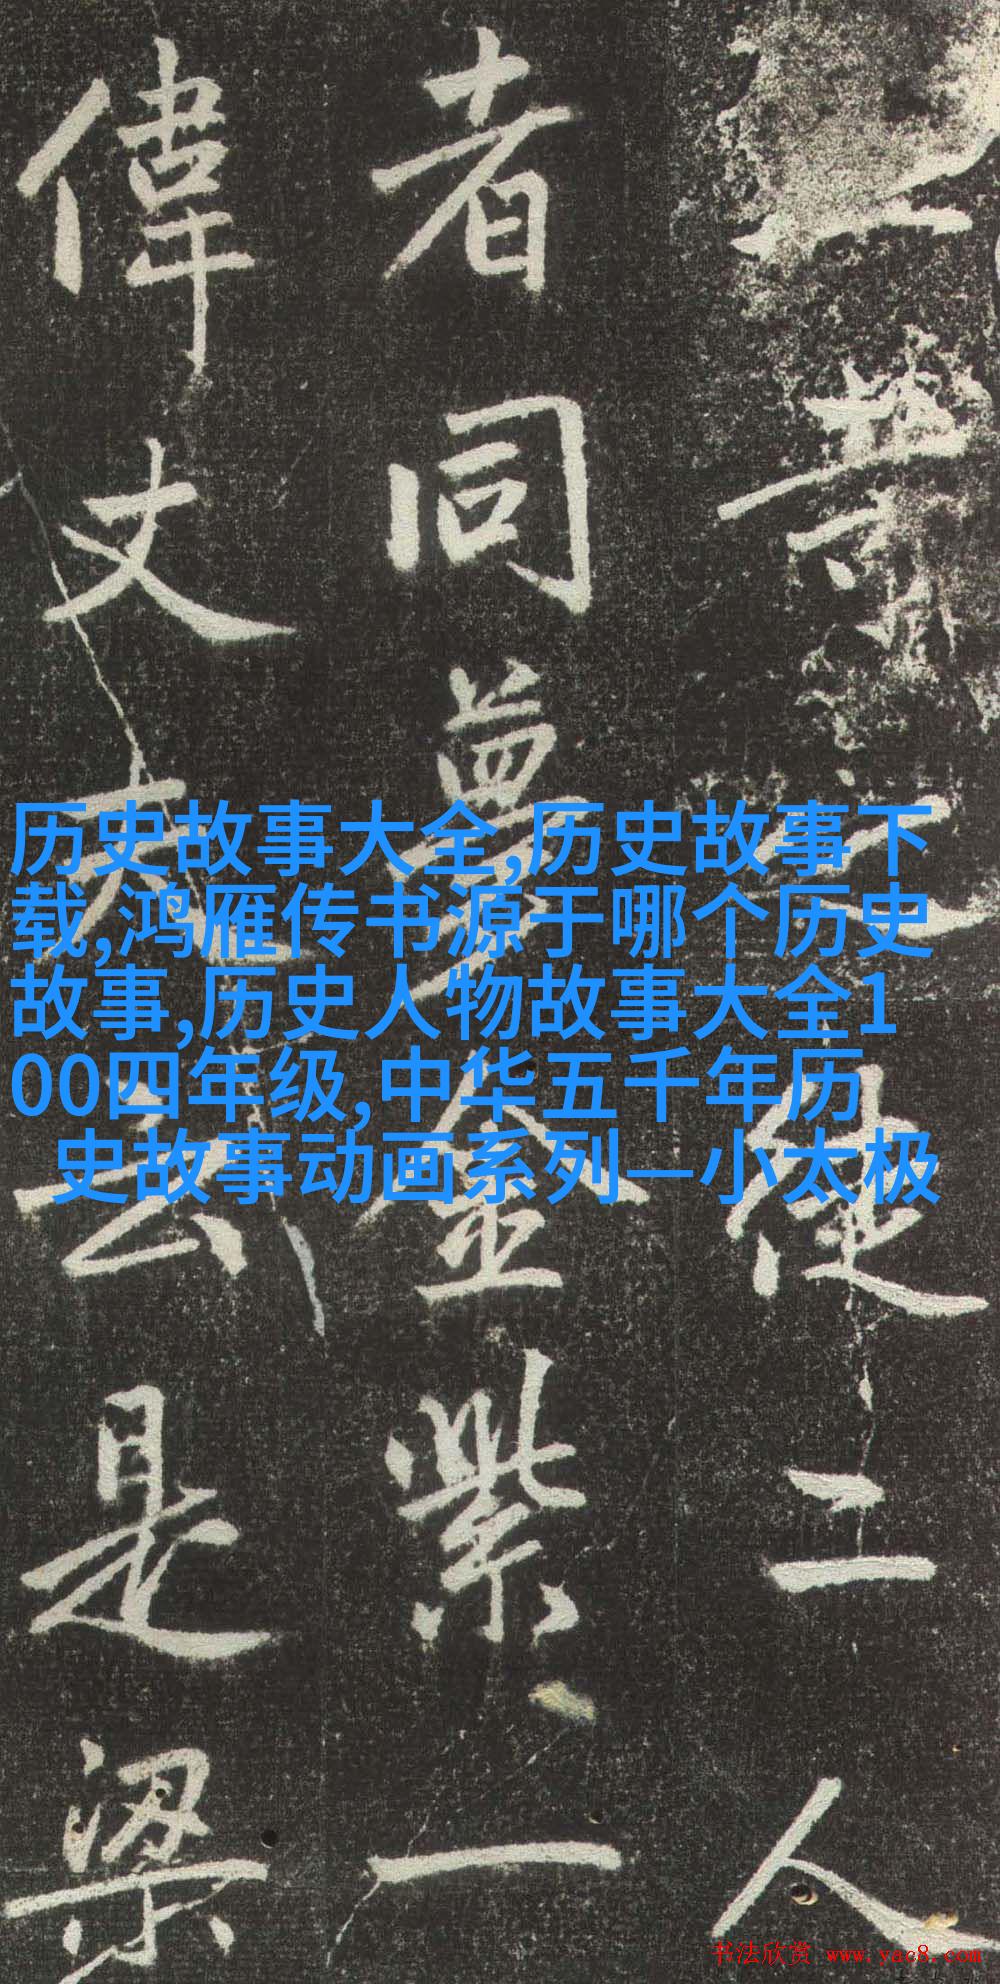 使二人
者同夢金紫一
偉丈夫云是梁
历史故事大全,历史故事下
载,鸿雁传书源于哪个历史
故事,历史人物故事大全1
00四年级,中华五千年历
史故事动画系列—小太极
书法欣赏 www.yac8.com